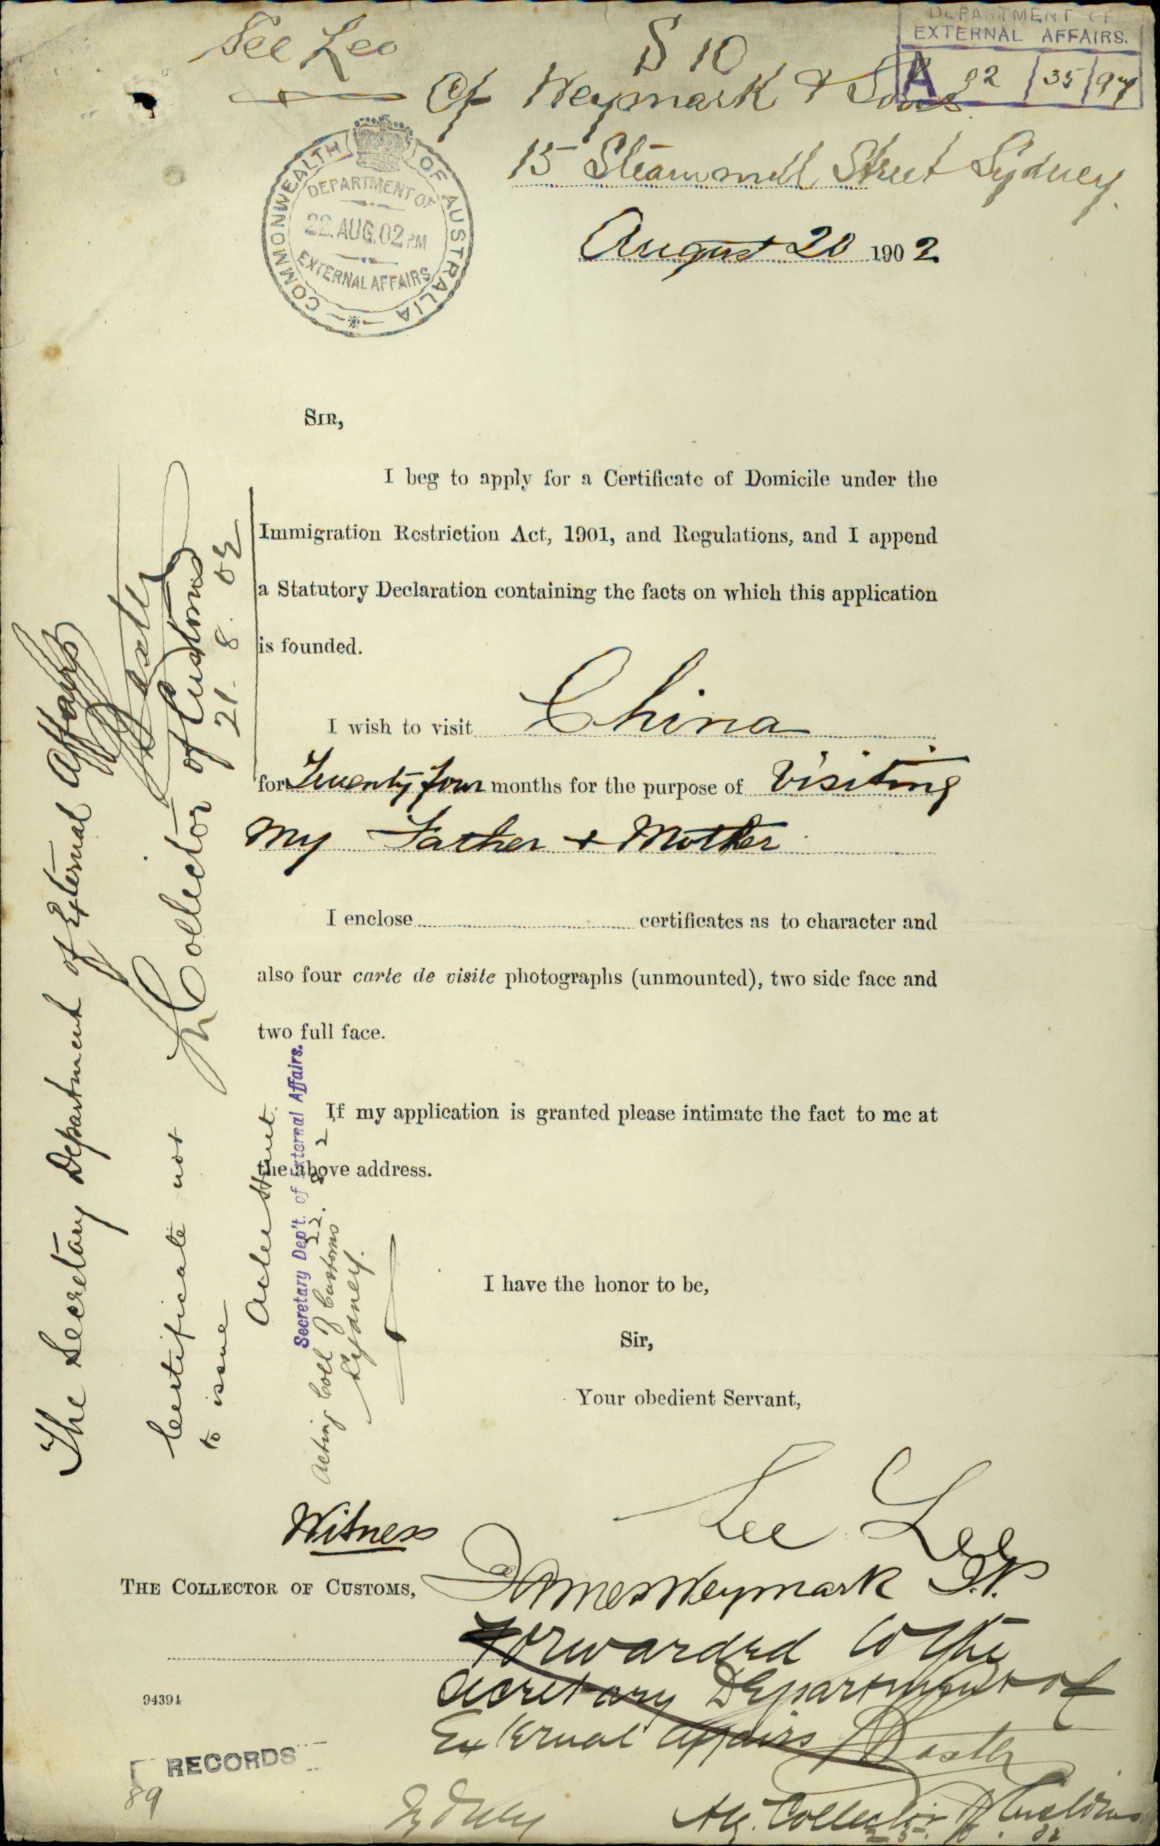 See Leo
S 10
DEPARTMENT OF
EXTERNAL AFFAIRS.
A 02 35 97
C/o Weymark & Sons
15 Steam mill Street Sydney.
COMMONWEALTH OF AUSTRALIA
DEPARTMENT OF
22. AUG. 02 PM
EXTERNAL AFFAIRS
August 20 1902
SIR,
I beg to apply for a Certificate of Domicile under the
Immigration Restriction Act, 1901, and Regulations, and I append
a Statutory Declaration containing the facts on which this application
is founded.
I wish to visit China
for Twenty four months for the purpose of Visiting
My Father + Mother
I enclose certificates as to character and
also four carte de visite photographs (unmounted), two side face and
two full face.
If my application is granted please intimate the fact to me at
the above address.
I have the honor to be,
Sir,
Your obedient Servant,
See Lee
Witness
James Weymark J.P.
THE COLLECTOR OF CUSTOMS,
Forwarded to the
Secretary Department of
External Affairs
Baxter
Sydney
Actg. Collector of Customs
94394
RECORDS
89
The Secretary Department of External Affairs
Baxter
Collector of Customs
21. 8. 02
Certificate not
to issue
Atlee Hunt
Secretary Dep't. of External Affairs.
22. 8. 2
Acting Coll of Customs
Sydney.